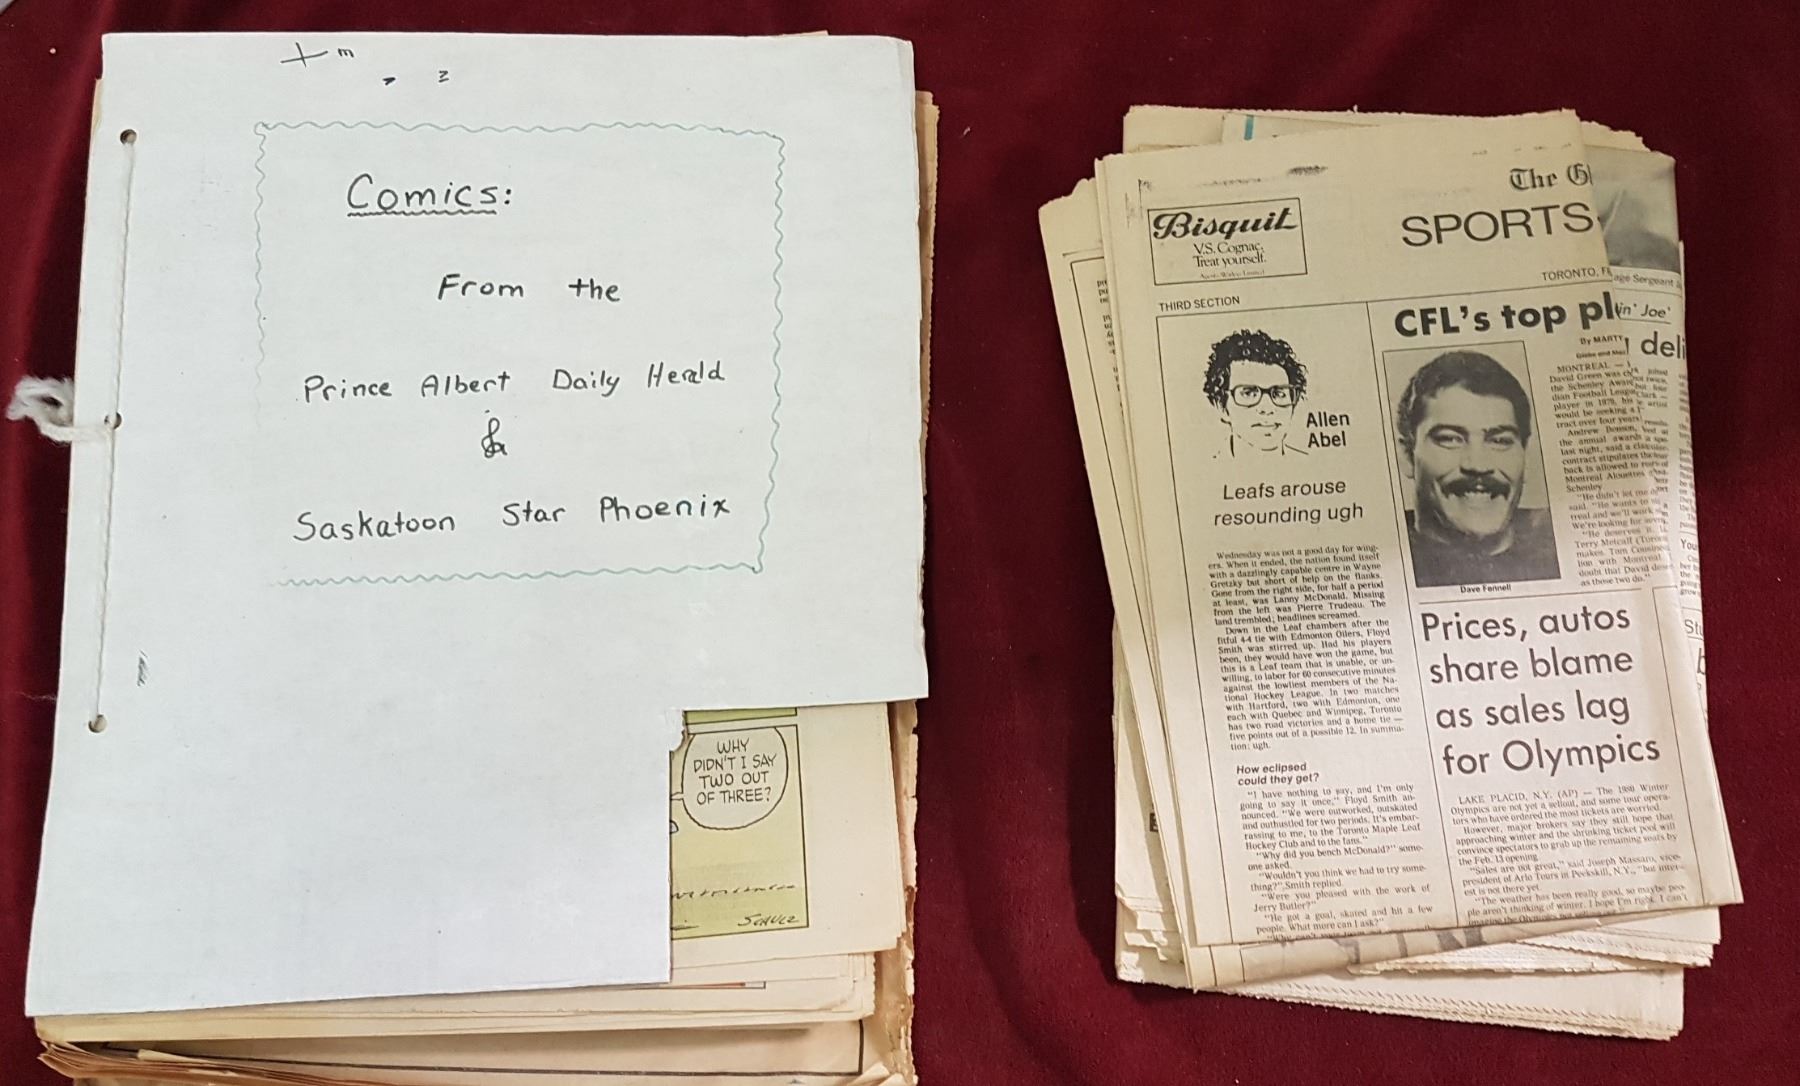 Comics:
From the
Prince Albert Daily Herald
&
Saskatoon Star Phoenix
WHY
DIDN'T I SAY
TWO OUT
OF THREE?
SCHULZ
The Gl
SPORTS
Bisquit
V.S. Cognac.
Treat yourself.
TORONTO, F
age Sergeant
THIRD SECTION
CFL's top pl
in' Joe'
deli
By MARTY
Allen
Abel
Leafs arouse
resounding ugh
Wednesday was not a good day for wing-
ers. When it ended, the nation found itself
with a dazzlingly capable centre in Wayne
Gretzky but short of help on the flanks.
Gone from the right side, for half a period
at least, was Lanny McDonald. Missing
from the left was Pierre Trudeau. The
land trembled; headlines screamed.
Down in the Leaf chambers after the
fitful 4-4 tie with Edmonton Oilers, Floyd
Smith was stirred up. Had his players
been, they would have won the game, but
this is a Leaf team that is unable, or un-
willing, to labor for 60 consecutive minutes
against the lowliest members of the Na-
tional Hockey League. In two matches
with Hartford, two with Edmonton, one
each with Quebec and Winnipeg, Toronto
has two road victories and a home tie —
five points out of a possible 12. In summa-
tion: ugh.
How eclipsed
could they get?
"I have nothing to say, and I'm only
going to say it once," Floyd Smith an-
nounced. "We were outworked, outskated
and outhustled for two periods. It's embar-
rassing to me, to the Toronto Maple Leaf
Hockey Club and to the fans."
"Why did you bench McDonald?" some-
one asked.
"Wouldn't you think we had to try some-
thing?" Smith replied.
"Were you pleased with the work of
Jerry Butler?"
"He got a goal, skated and hit a few
people. What more can I ask?"
MONTREAL —
David Green was
the Schenley Awar
dian Football Leagu
player in 1979, his
would be seeking a
tract over four years
the annual awards
last night, said a
contract stipulates the
back is allowed to
Montreal Alouettes
Schenley.
"He didn't let me
said. "He wants to
treal and we'll work
We're looking for
"He deserves it.
Terry Metcalf (Toron
makes. Tom Cousineau
lion with Montreal
doubt that David
as those two do."
Dave Fennell
Prices, autos
share blame
as sales lag
for Olympics
LAKE PLACID, N.Y. (AP) — The 1980 Winter
Olympics are not yet a sellout, and some tour opera-
tors who have ordered the most tickets are worried.
However, major brokers say they still hope that
approaching winter and the shrinking ticket pool will
convince spectators to grab up the remaining seats by
the Feb. 13 opening.
"Sales are not great," said Joseph Massaro, vice-
president of Arlo Tours in Peekskill, N.Y., "but inter-
est is not there yet.
"The weather has been really good, so maybe peo-
ple aren't thinking of winter. I hope I'm right. I can't